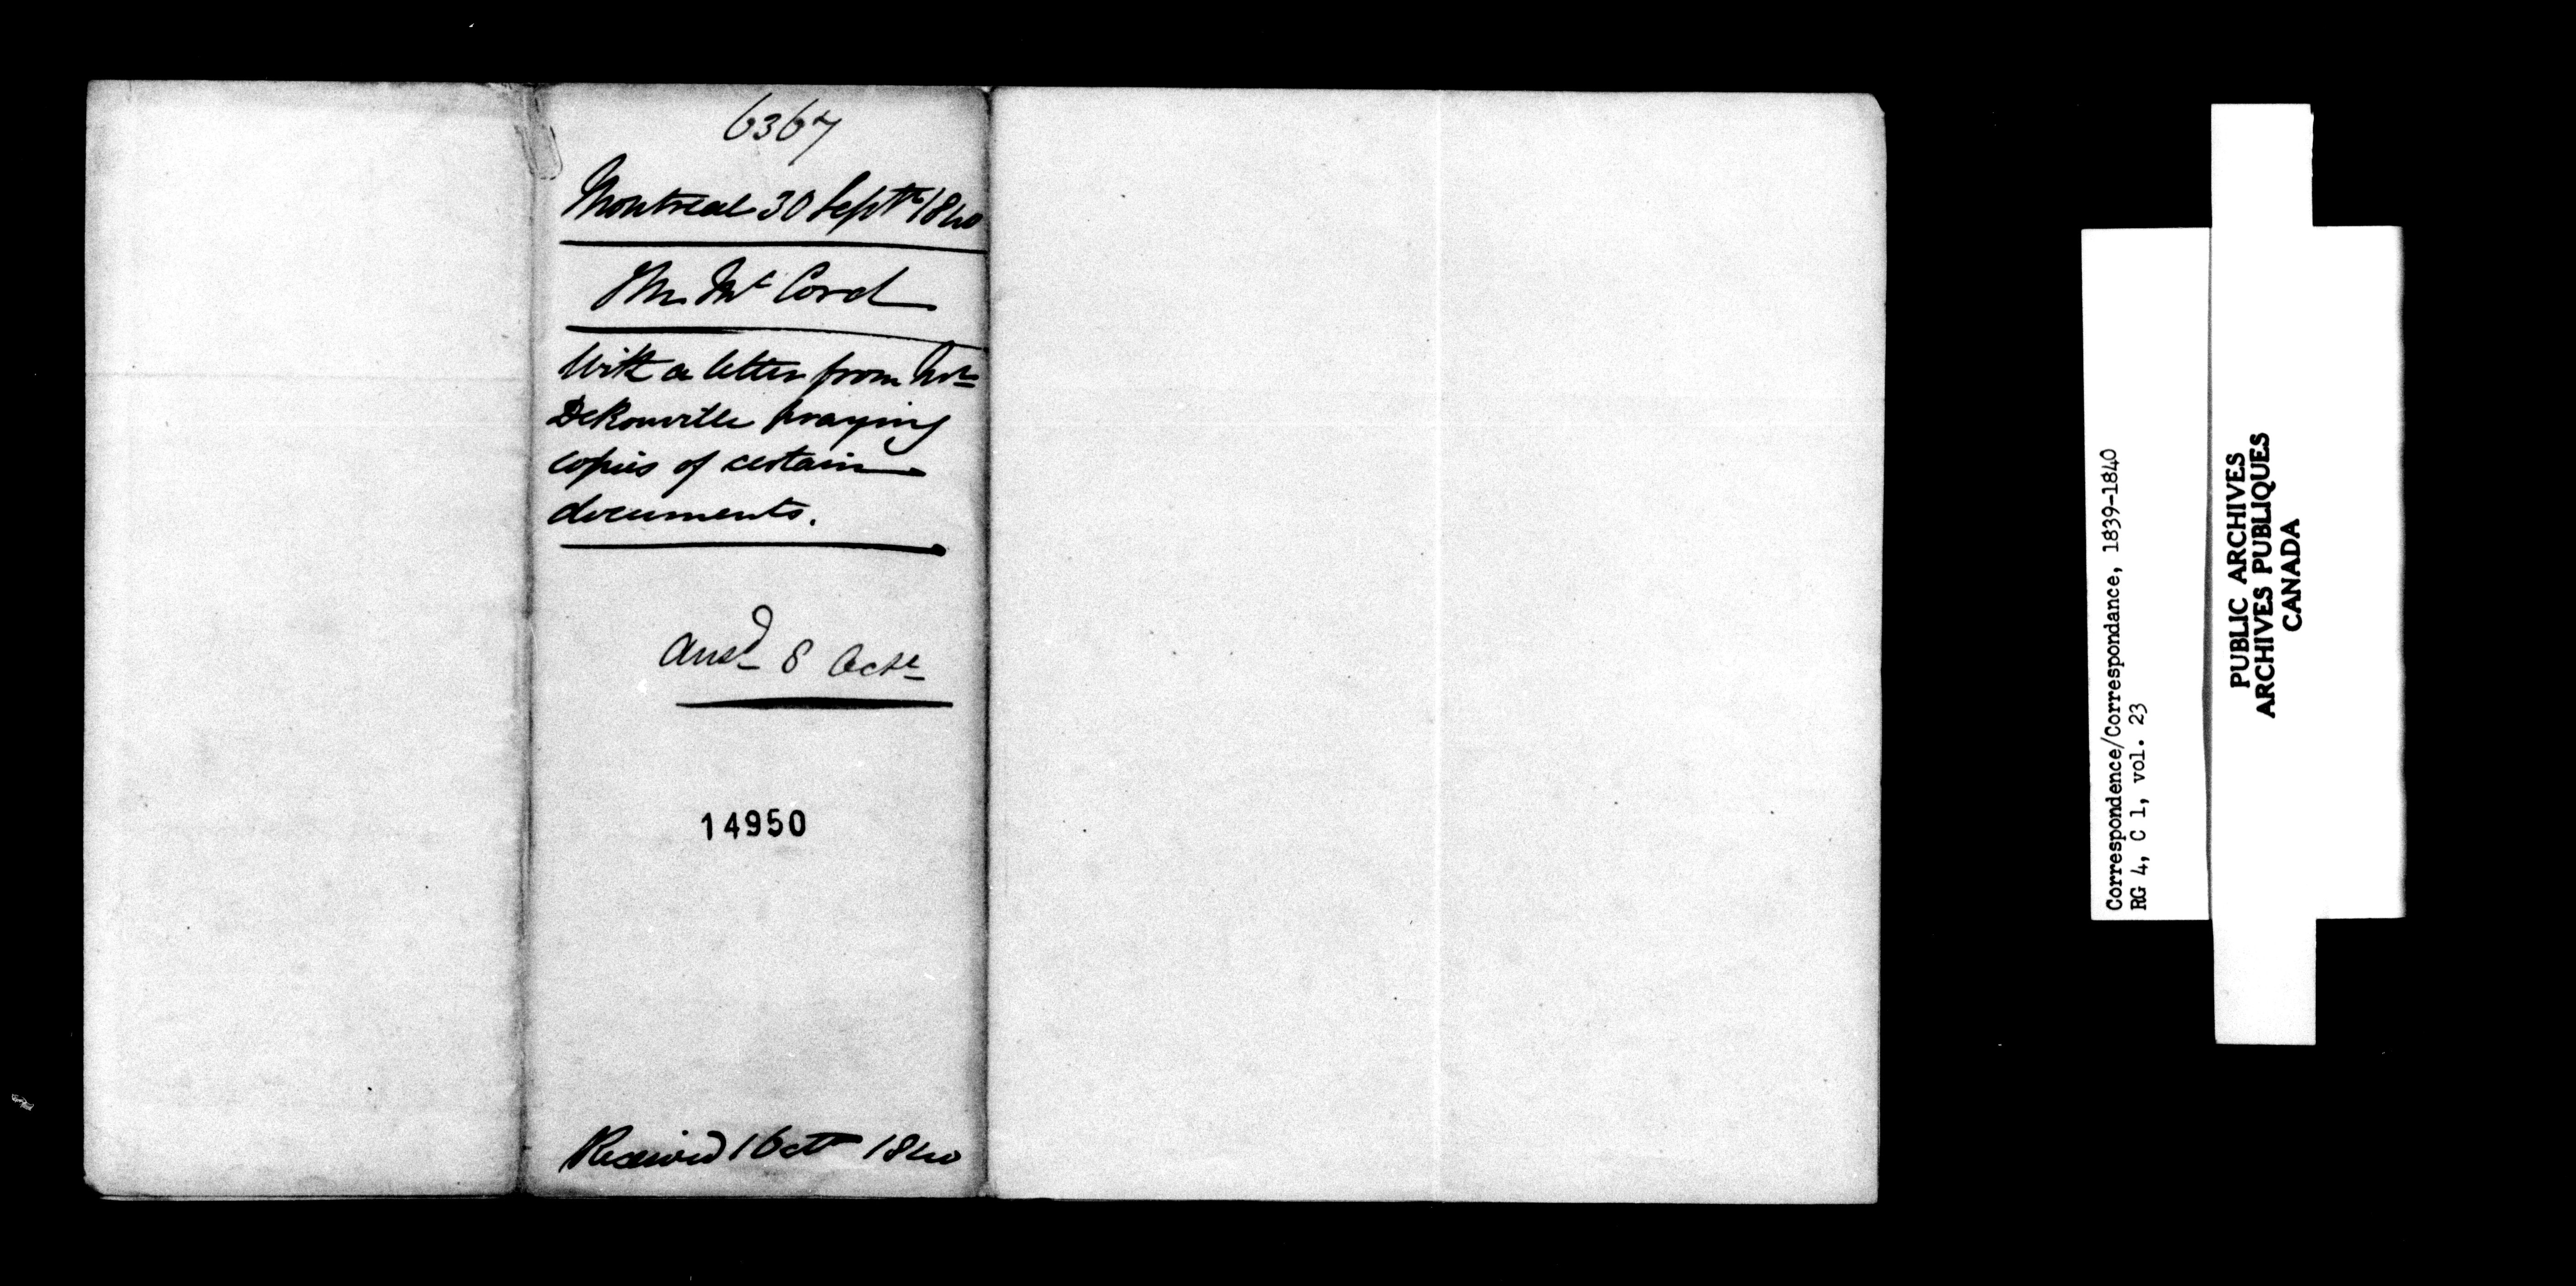 6367
Montreal 30 Septr 1840
Mr McCord
With a letter from Mr
DeRouville praying
copies of certain
documents.
Ansd 8 Octr
14950
Received 1 Octr 1840
Correspondence/Correspondance, 1839-1840
RG 4, C 1, vol. 23
PUBLIC ARCHIVES
ARCHIVES PUBLIQUES
CANADA